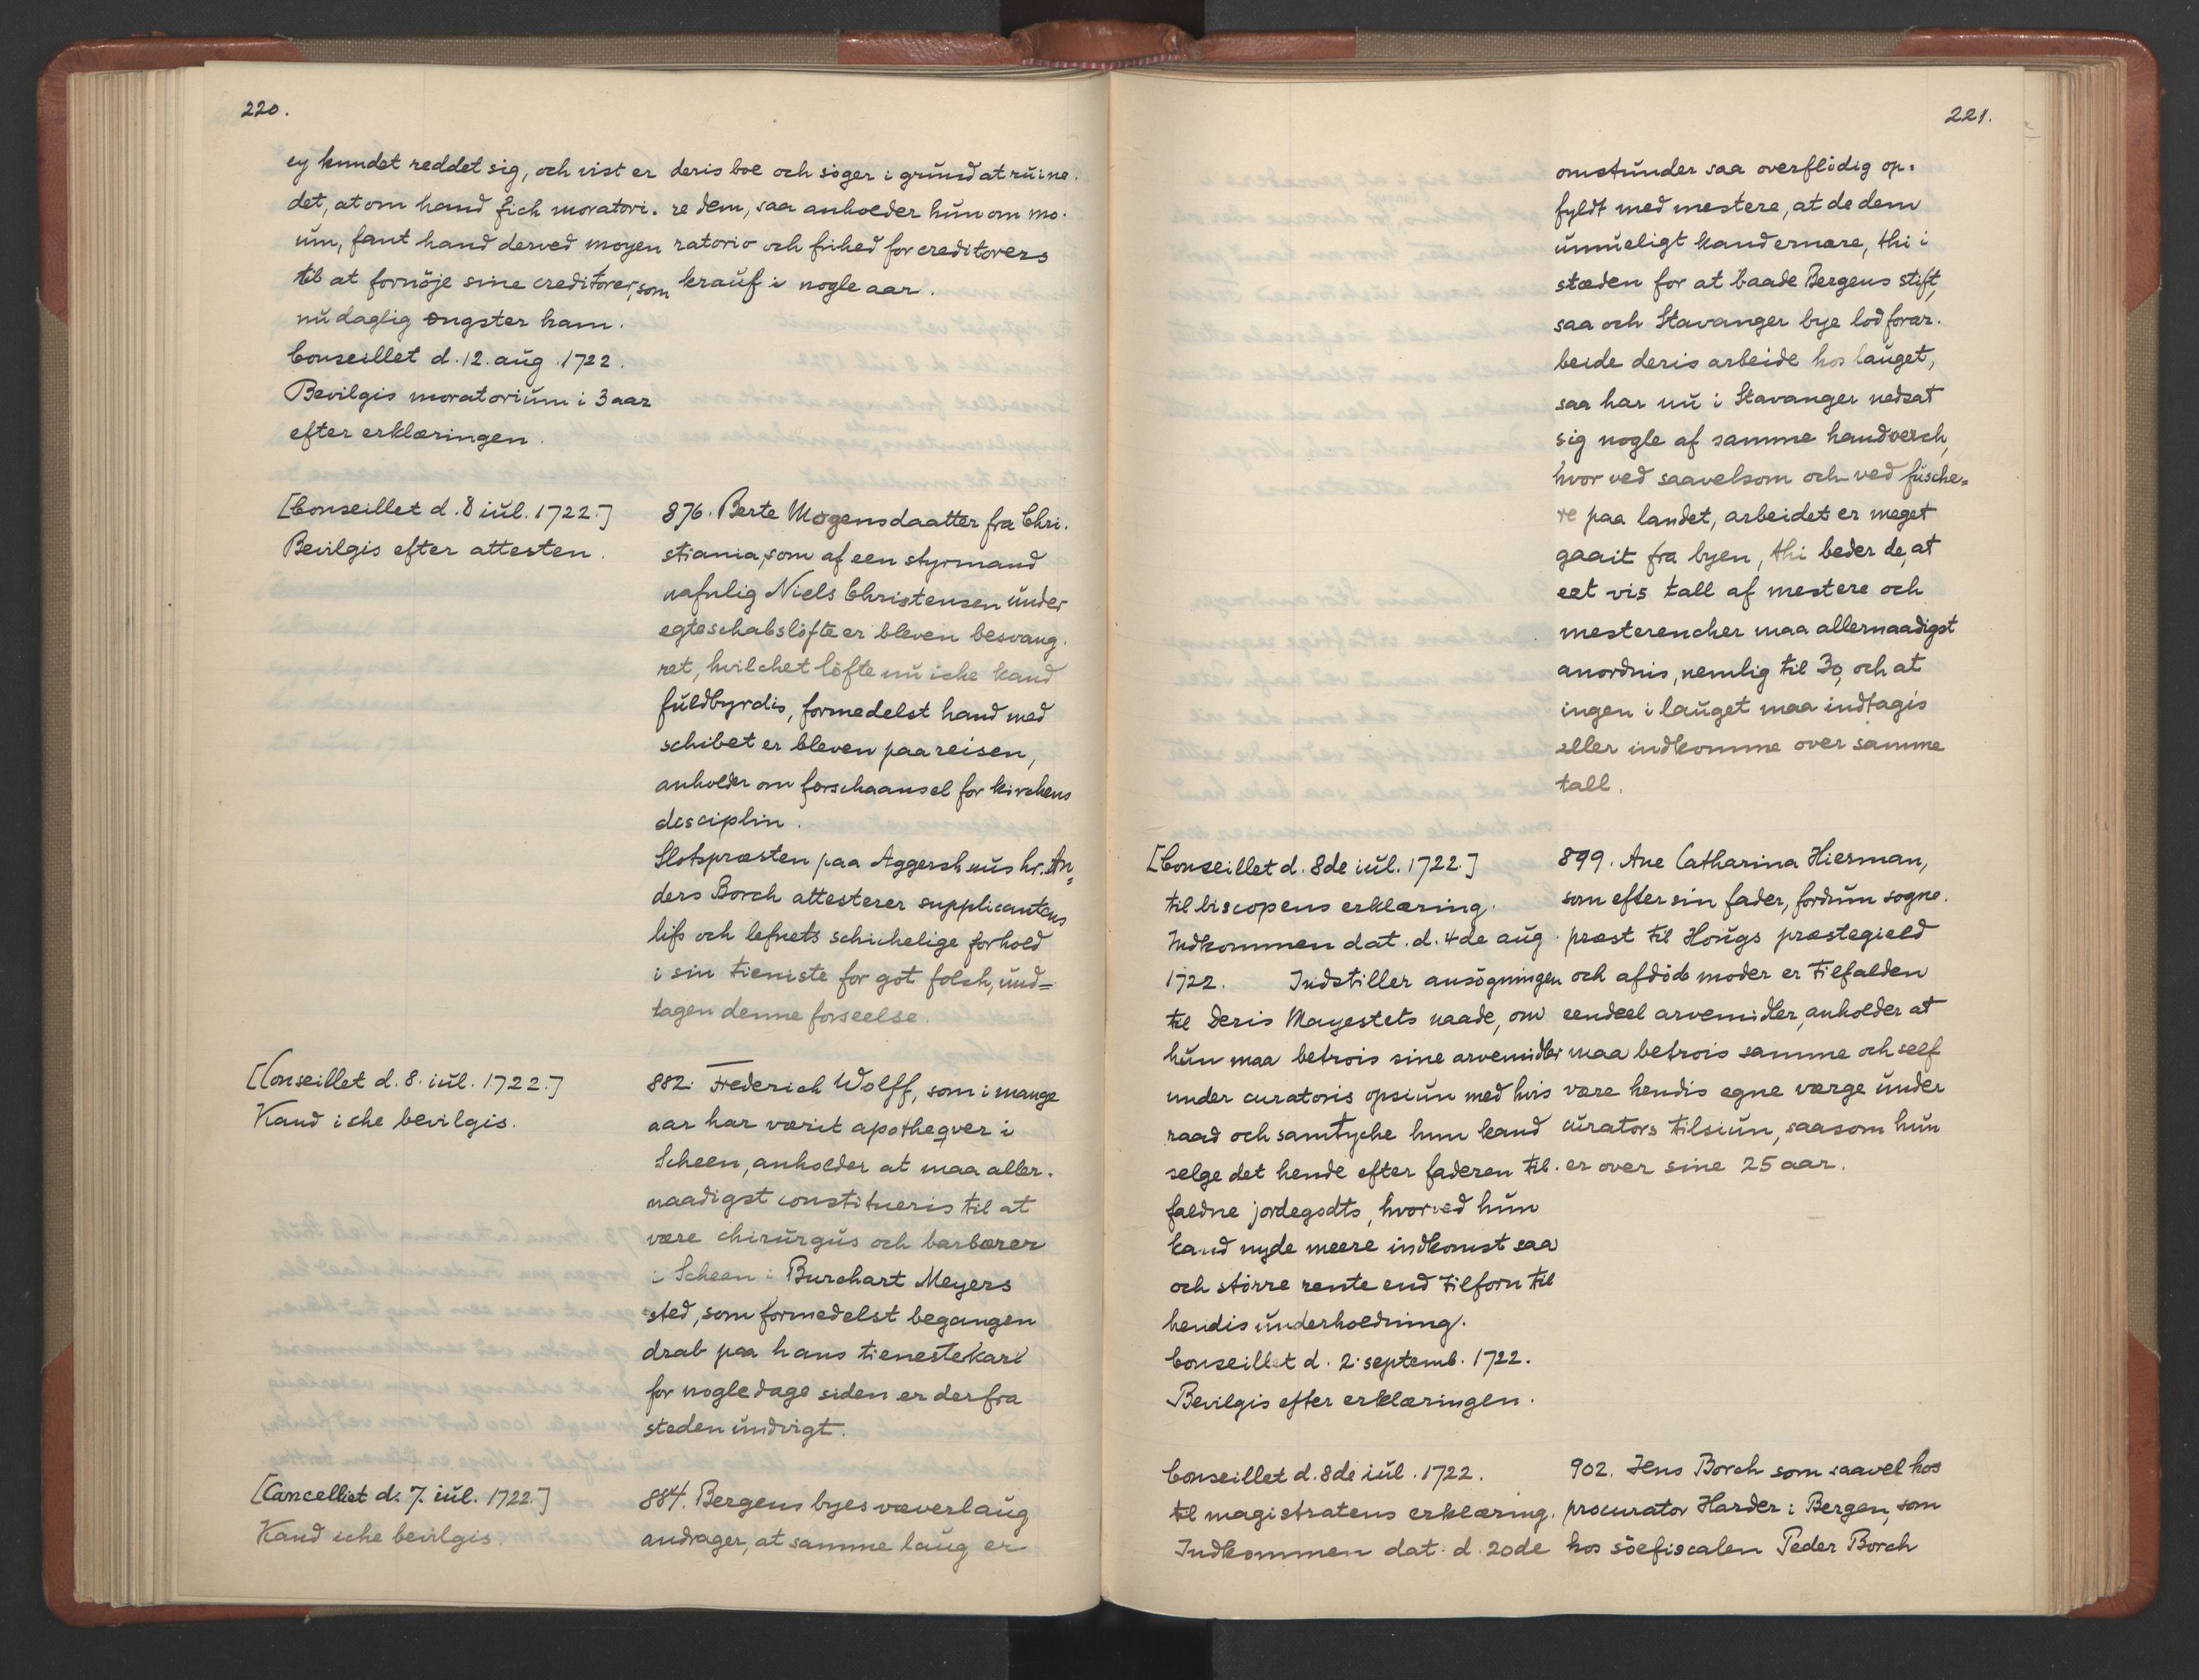 220.
ey kundet reddet sig, och vist er
det, at om hand fich moratori-
um, fant hand derved moyen
til at fornöje sine creditorer, som
nu daglig engster ham.
Conseillet d. 12. aug. 1722.
Bevilgis moratorium i 3 aar
efter erklæringen.
deris boe och söger i grund at ruine-
re dem, saa anholder hun om mo-
ratorio och frihed for creditorers
krauf i nogle aar.
[Conseillet d. 8 iul. 1722.]
Bevilgis efter attesten.
876. Berte Mogensdaatter fra Chri-
stiania, som af een styrmand
nafnlig Niels Christensen under
egteschabslöfte er bleven besvang-
ret, hvilchet löfte nu iche kand
fuldbyrdis, formedelst hand med
schibet er bleven paa reisen,
anholder om forschaansel for kirchens
desciplin.
Slotspræsten paa Aggershuus hr. An=
ders Borch attesterer supplicantens
lifs och lefnets schichelige forhold
i sin tieniste for got folch, und=
tagen denne forseelse.
[Conseillet d. 8. iul. 1722.]
Kand iche bevilgis.
882. Frederich Wolff, som i mange
aar har værit apotheqver i
Scheen, anholder at maa aller-
naadigst constitueris til at
være chirurgus och barbærer
i Scheen i Burchart Meyers
sted, som formedelst begangen
drab paa hans tienestekarl
for nogle dage siden er derfra
steden undvigt.
[Cancelliet d. 7. iul. 1722.]
Kand iche bevilgis.
884. Bergens byes væverlaug
andrager, at samme laug er
221.
omstunder saa overflödig op-
fyldt med mestere, at de dem
umueligt kand ernære, thi i
stæden for at baade Bergens stift,
saa och Stavanger bye lod forar-
beide deris arbeide hos lauget,
saa har nu i Stavanger nedsat
sig nogle af samme handverch,
hvor ved saavelsom och ved fusche=
re paa landet, arbeidet er meget
gaait fra byen, thi beder de, at
eet vis tall af mestere och
mesterencher maa allernaadigst
anordnis, nemlig til 30, och at
ingen i lauget maa indtagis
eller indkomme over samme
tall.
[Conseillet d. 8de iul. 1722.]
til biscopens erklæring.
Indkommen dat. d. 4de aug.
1722. Indstiller ansögningen
til Deris Mayestets naade, om
hun maa betrois sine arvemidler
under curatoris opsiun med hvis
raad och samtyche hun kand
selge det hende efter faderen til-
faldne jordegodts, hvorved hun
kand nyde meere indkomst saa
och större rente end tilforn til
hendis underholdning.
Conseillet d. 2. septemb. 1722.
Bevilgis efter erklæringen.
899. Ane Catharina Hierman,
som efter sin fader, fordum sogne-
præst til Hougs præstegield
och afdöde moder er tilfalden
eendeel arvemidler, anholder at
maa betrois samme och self
være hendis egne værge under
curators tilsiun, saasom hun
er over sine 25 aar.
Conseillet d. 8de iul. 1722.
til magistratens erklæring.
Indkommen dat. d. 20de
902. Jens Borch som saavel hos
procurator Harder i Bergen, som
hos söefiscalen Peder Borch